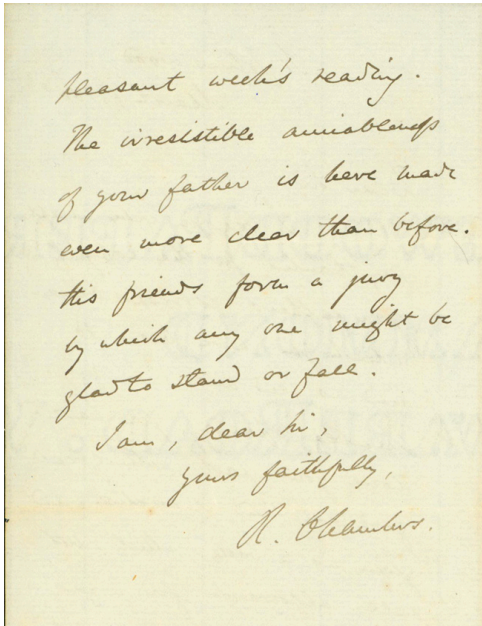 pleasant week's reading.
The irresistible amiableness
of your father is here made
even more clear than before.
His friends form a jury
by which any one might be
glad to stand or fall.
I am, dear Sir,
yours faithfully,
R. Chambers.